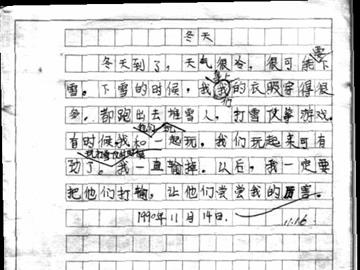 冬天
冬天到了，天气很冷，很可能下
雪。下雪的时候，我的衣服穿得很
多，都跑出去堆雪人，打雪仗等游戏。
有时候我和一起玩。我们玩起来可有
劲了。我一直输掉。以后，我一定要
把他们打输，让他们尝尝我的厉害。
1990年11月14日.
11.16